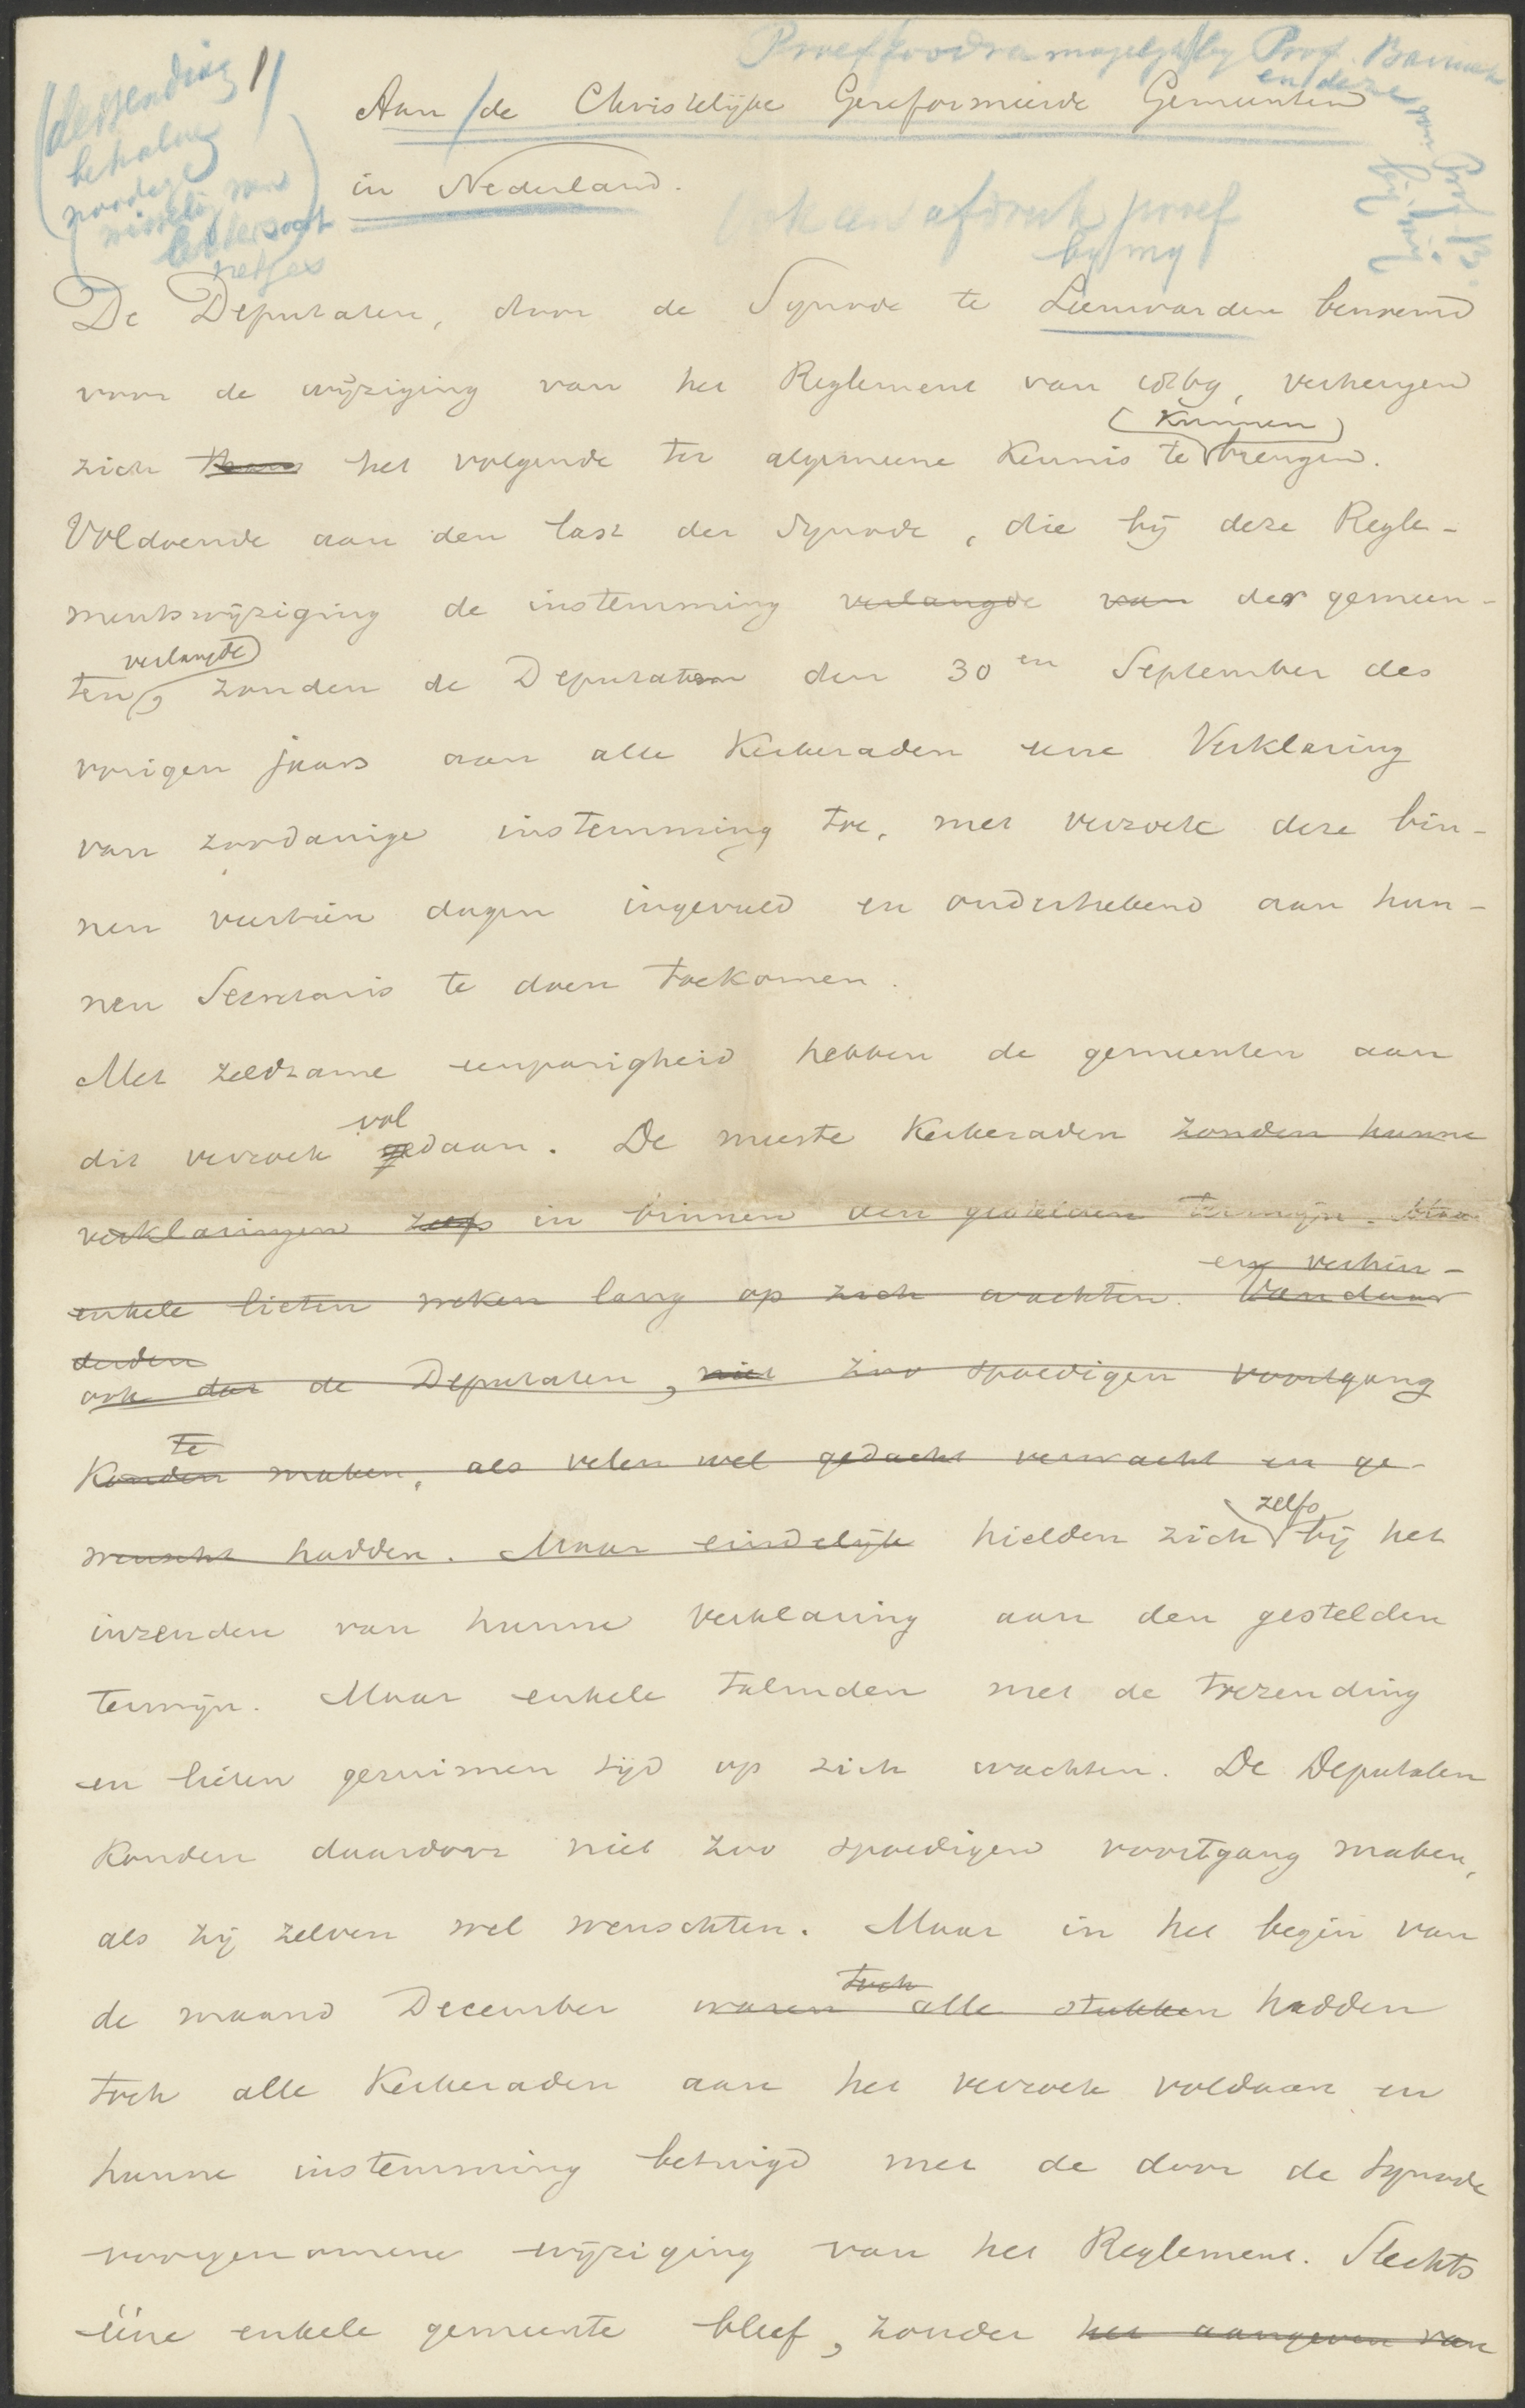 Proef zoodra mogelijk by Prof. Bavinck
en deze
Aan de Christelijke Gereformeerde Gemeenten
in Nederland.
afdruk proef
by my
De Deputaten, door de Synode te Leeuwarden benoemd
voor de wijziging van het Reglement van 1869, verheugen
zich thans het volgende ter algemeene kennis te (kunnen) brengen.
Voldoende aan den last der Synode, die bij deze Regle-
mentswijziging de instemming verlangde van der gemeen-
ten verlangde, zonden de Deputaten den 30en September des
vorigen jaars aan alle Kerkeraden eene Verklaring
van zoodanige instemming toe, met verzoek deze bin-
nen veertien dagen ingevuld en onderteekend aan hun-
nen Secretaris te doen toekomen.
Met zeldzame eenparigheid hebben de gemeenten aan
dit verzoek voldaan. De meeste Kerkeraden zonden hunne
verklaringen zelfs in binnen den gestelden termijn. Maar
enkele lieten weken lang op zich wachten. Vandaar
en verhin-
derden
ook dat de Deputaten, niet zoo spoedigen voortgang
te
konden maken, als velen wel gedacht verwacht en ge-
wenscht hadden. Maar eindelijk hielden zich zelfs bij het
inzenden van hunne verklaring aan den gestelden
termijn. Maar enkele talmden met de toezending
en lieten geruimen tijd op zich wachten. De Deputaten
konden daardoor niet zoo spoedigen voortgang maken,
als zij zelven wel wenschten. Maar in het begin van
de maand December waren toch alle stukken hadden
toch alle Kerkeraden aan het verzoek voldaan en
hunne instemming betuigd met de door de Synode
voorgenomene wijziging van het Reglement. Slechts
ééne enkele gemeente bleef, zonder het aangeven van